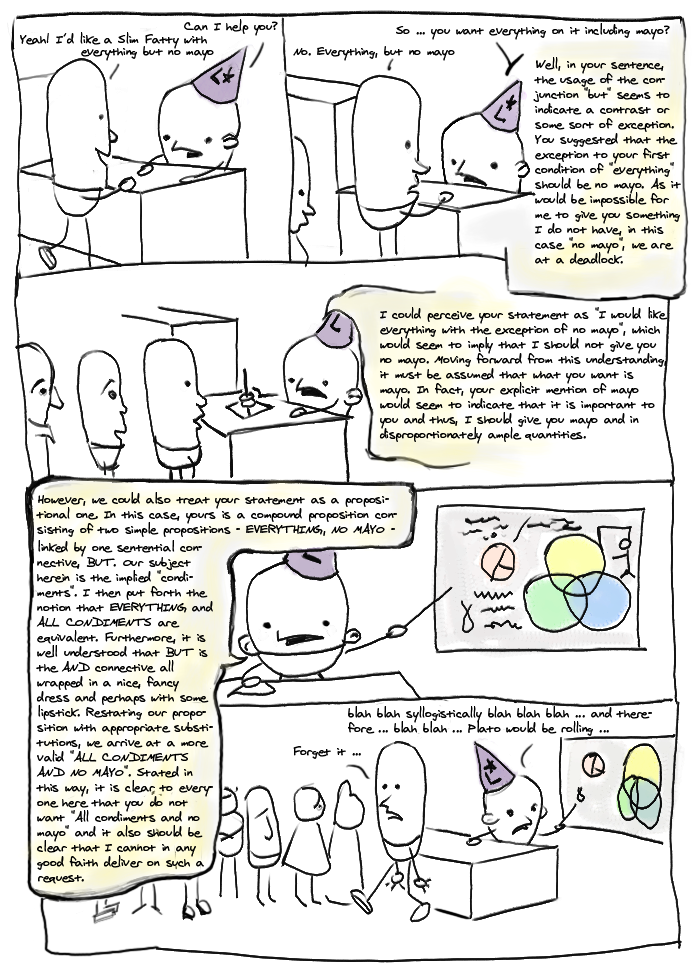 Can I help you?
Yeah! I'd like a Slim Fatty with
everything but no mayo
So ... you want everything on it including mayo?
No. Everything, but no mayo
Well, in your sentence,
the usage of the con-
junction "but" seems to
indicate a contrast or
some sort of exception.
You suggested that the
exception to your first
condition of "everything"
should be no mayo. As it
would be impossible for
me to give you something
I do not have, in this
case "no mayo", we are
at a deadlock.
I could perceive your statement as "I would like
everything with the exception of no mayo", which
would seem to imply that I should not give you
no mayo. Moving forward from this understanding,
it must be assumed that what you want is
mayo. In fact, your explicit mention of mayo
would seem to indicate that it is important to
you and thus, I should give you mayo and in
disproportionately ample quantities.
However, we could also treat your statement as a proposi-
tional one. In this case, yours is a compound proposition con-
sisting of two simple propositions - EVERYTHING, NO MAYO -
linked by one sentential con-
nective, BUT. Our subject
herein is the implied "condi-
ments". I then put forth the
notion that EVERYTHING and
ALL CONDIMENTS are
equivalent. Furthermore, it is
well understood that BUT is
the AND connective all
wrapped in a nice, fancy
dress and perhaps with some
lipstick. Restating our propo-
sition with appropriate substi-
tutions, we arrive at a more
valid "ALL CONDIMENTS
AND NO MAYO". Stated in
this way, it is clear to every
one here that you do not
want "All condiments and no
mayo" and it also should be
clear that I cannot in any
good faith deliver on such a
request.
blah blah syllogistically blah blah blah ... and there-
fore ... blah blah ... Plato would be rolling ...
Forget it ...